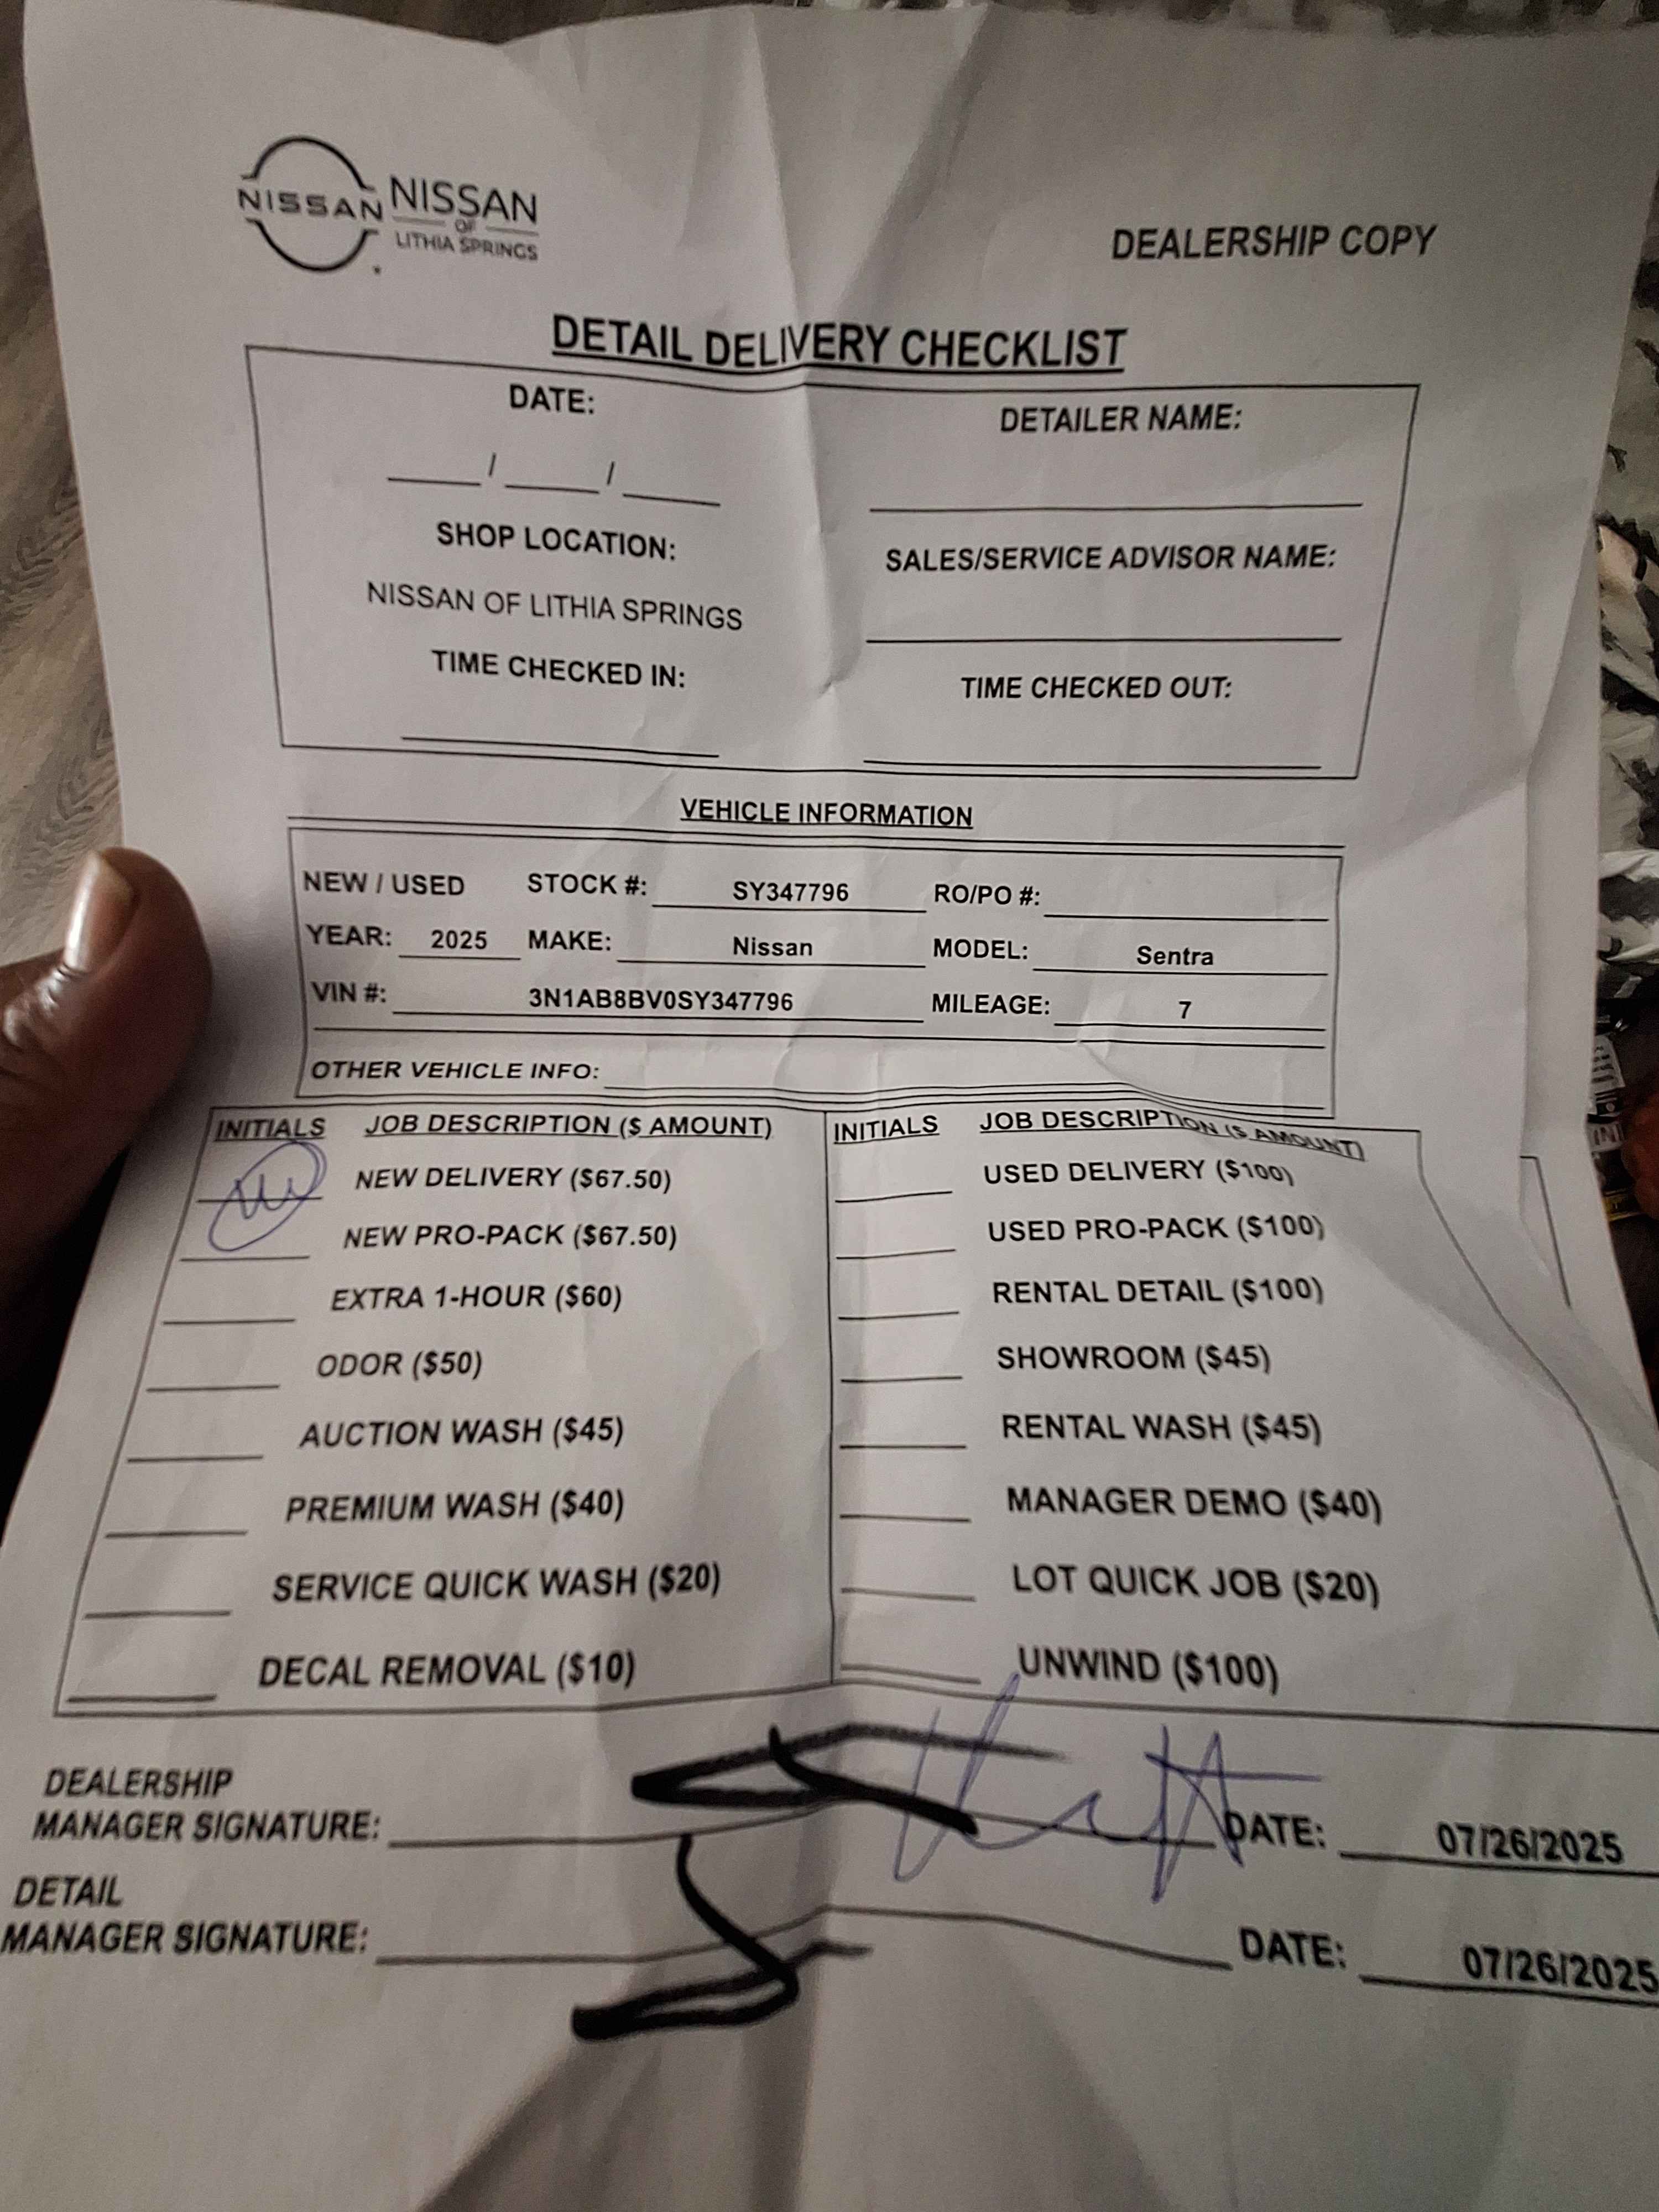 NISSAN NISSAN
OF
LITHIA SPRINGS
DEALERSHIP COPY
DETAIL DELIVERY CHECKLIST
DATE:
DETAILER NAME:
___/___/___
SHOP LOCATION:
SALES/SERVICE ADVISOR NAME:
NISSAN OF LITHIA SPRINGS
TIME CHECKED IN:
TIME CHECKED OUT:
VEHICLE INFORMATION
NEW / USED STOCK #: SY347796 RO/PO #:
YEAR: 2025 MAKE: Nissan MODEL: Sentra
VIN #: 3N1AB8BV0SY347796 MILEAGE: 7
OTHER VEHICLE INFO:
INITIALS JOB DESCRIPTION ($ AMOUNT) INITIALS JOB DESCRIPTION ($ AMOUNT)
NEW DELIVERY ($67.50) USED DELIVERY ($100)
NEW PRO-PACK ($67.50) USED PRO-PACK ($100)
EXTRA 1-HOUR ($60) RENTAL DETAIL ($100)
ODOR ($50) SHOWROOM ($45)
AUCTION WASH ($45) RENTAL WASH ($45)
PREMIUM WASH ($40) MANAGER DEMO ($40)
SERVICE QUICK WASH ($20) LOT QUICK JOB ($20)
DECAL REMOVAL ($10) UNWIND ($100)
DEALERSHIP
MANAGER SIGNATURE: DATE: 07/26/2025
DETAIL
MANAGER SIGNATURE: DATE: 07/26/2025